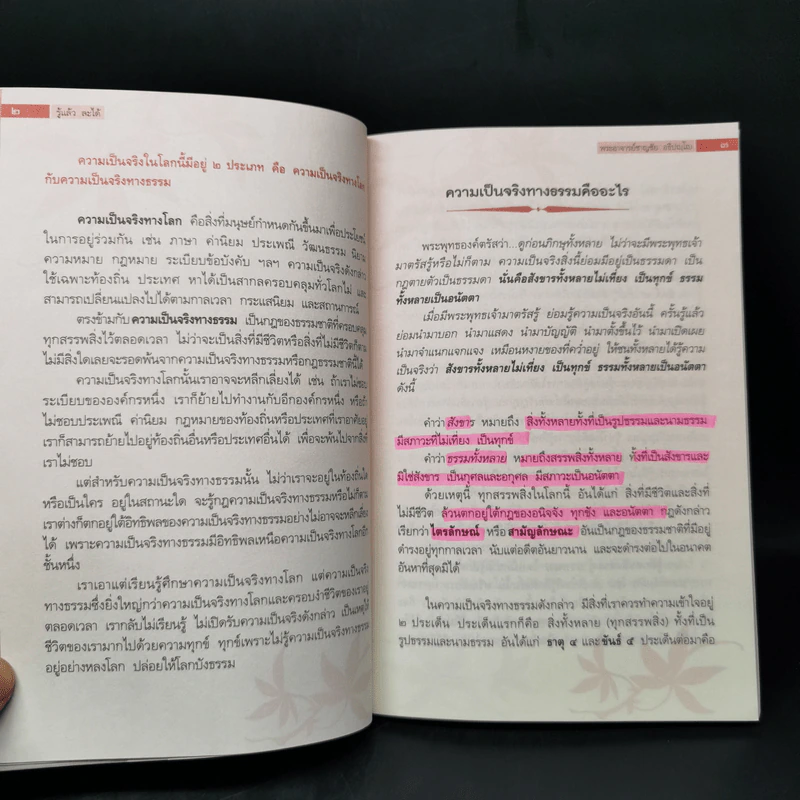 ๒ รู้แล้ว ละได้
ความเป็นจริงในโลกนี้มีอยู่ ๒ ประเภท คือ ความเป็นจริงทางโลก
กับความเป็นจริงทางธรรม
ความเป็นจริงทางโลก คือสิ่งที่มนุษย์กำหนดกันขึ้นมาเพื่อประโยชน์
ในการอยู่ร่วมกัน เช่น ภาษา ค่านิยม ประเพณี วัฒนธรรม นิยาม
ความหมาย กฎหมาย ระเบียบข้อบังคับ ฯลฯ ความเป็นจริงดังกล่าว
ใช้เฉพาะท้องถิ่น ประเทศ หาได้เป็นสากลครอบคลุมทั่วโลกไม่ และ
สามารถเปลี่ยนแปลงไปได้ตามกาลเวลา กระแสนิยม และสถานการณ์
ตรงข้ามกับความเป็นจริงทางธรรม เป็นกฎของธรรมชาติที่ครอบคลุม
ทุกสรรพสิ่งไว้ตลอดเวลา ไม่ว่าจะเป็นสิ่งที่มีชีวิตหรือสิ่งที่ไม่มีชีวิตก็ตาม
ไม่มีสิ่งใดเลยจะรอดพ้นจากความเป็นจริงทางธรรมหรือกฎธรรมชาตินี้ได้
ความเป็นจริงทางโลกนั้นเราอาจจะหลีกเลี่ยงได้ เช่น ถ้าเราไม่ชอบ
ระเบียบขององค์กรหนึ่ง เราก็ย้ายไปทำงานกับอีกองค์กรหนึ่ง หรือถ้า
ไม่ชอบประเพณี ค่านิยม กฎหมายของท้องถิ่นหรือประเทศที่เราอาศัยอยู่
เราก็สามารถย้ายไปอยู่ท้องถิ่นอื่นหรือประเทศอื่นได้ เพื่อจะพ้นไปจากสิ่งที่
เราไม่ชอบ
แต่สำหรับความเป็นจริงทางธรรมนั้น ไม่ว่าเราจะอยู่ในท้องถิ่นใด
หรือเป็นใคร อยู่ในสถานะใด จะรู้กฎความเป็นจริงทางธรรมหรือไม่ก็ตาม
เราต่างก็ตกอยู่ใต้อิทธิพลของความเป็นจริงทางธรรมอย่างไม่อาจจะหลีกเลี่ยง
ได้ เพราะความเป็นจริงทางธรรมมีอิทธิพลเหนือความเป็นจริงทางโลกอีก
ชั้นหนึ่ง
เราเอาแต่เรียนรู้ศึกษาความเป็นจริงทางโลก แต่ความเป็นจริง
ทางธรรมซึ่งยิ่งใหญ่กว่าความเป็นจริงทางโลกและครอบงำชีวิตของเราอยู่
ตลอดเวลา เรากลับไม่เรียนรู้ ไม่เปิดรับความเป็นจริงดังกล่าว เป็นเหตุให้
ชีวิตของเรามากไปด้วยความทุกข์ ทุกข์เพราะไม่รู้ความเป็นจริงทางธรรม
อยู่อย่างหลงโลก ปล่อยให้โลกบังธรรม
พระอาจารย์ชาญชัย อธิปญฺโญ ๓
ความเป็นจริงทางธรรมคืออะไร
พระพุทธองค์ตรัสว่า...ดูก่อนภิกษุทั้งหลาย ไม่ว่าจะมีพระพุทธเจ้า
มาตรัสรู้หรือไม่ก็ตาม ความเป็นจริงสิ่งนี้ย่อมมีอยู่เป็นธรรมดา เป็น
กฎตายตัวเป็นธรรมดา นั่นคือสังขารทั้งหลายไม่เที่ยง เป็นทุกข์ ธรรม
ทั้งหลายเป็นอนัตตา
เมื่อมีพระพุทธเจ้ามาตรัสรู้ ย่อมรู้ความเป็นจริงอันนี้ ครั้นรู้แล้ว
ย่อมนำมาบอก นำมาแสดง นำมาบัญญัติ นำมาตั้งขึ้นไว้ นำมาเปิดเผย
นำมาจำแนกแจกแจง เหมือนหงายของที่คว่ำอยู่ ให้ชนทั้งหลายได้รู้ความ
เป็นจริงว่า สังขารทั้งหลายไม่เที่ยง เป็นทุกข์ ธรรมทั้งหลายเป็นอนัตตา
ดังนี้
คำว่า สังขาร หมายถึง สิ่งทั้งหลายทั้งที่เป็นรูปธรรมและนามธรรม
มีสภาวะที่ไม่เที่ยง เป็นทุกข์
คำว่า ธรรมทั้งหลาย หมายถึงสรรพสิ่งทั้งหลาย ทั้งที่เป็นสังขารและ
มิใช่สังขาร เป็นกุศลและอกุศล มีสภาวะเป็นอนัตตา
ด้วยเหตุนี้ ทุกสรรพสิ่งในโลกนี้ อันได้แก่ สิ่งที่มีชีวิตและสิ่งที่
ไม่มีชีวิต ล้วนตกอยู่ใต้กฎของอนิจจัง ทุกขัง และอนัตตา กฎดังกล่าว
เรียกว่า ไตรลักษณ์ หรือ สามัญลักษณะ อันเป็นกฎของธรรมชาติที่มีอยู่
ดำรงอยู่ทุกกาลเวลา นับแต่อดีตอันยาวนาน และจะดำรงต่อไปในอนาคต
อันหาที่สุดมิได้
ในความเป็นจริงทางธรรมดังกล่าว มีสิ่งที่เราควรทำความเข้าใจอยู่
๒ ประเด็น ประเด็นแรกก็คือ สิ่งทั้งหลาย (ทุกสรรพสิ่ง) ทั้งที่เป็น
รูปธรรมและนามธรรม อันได้แก่ ธาตุ ๔ และขันธ์ ๕ ประเด็นต่อมาคือ